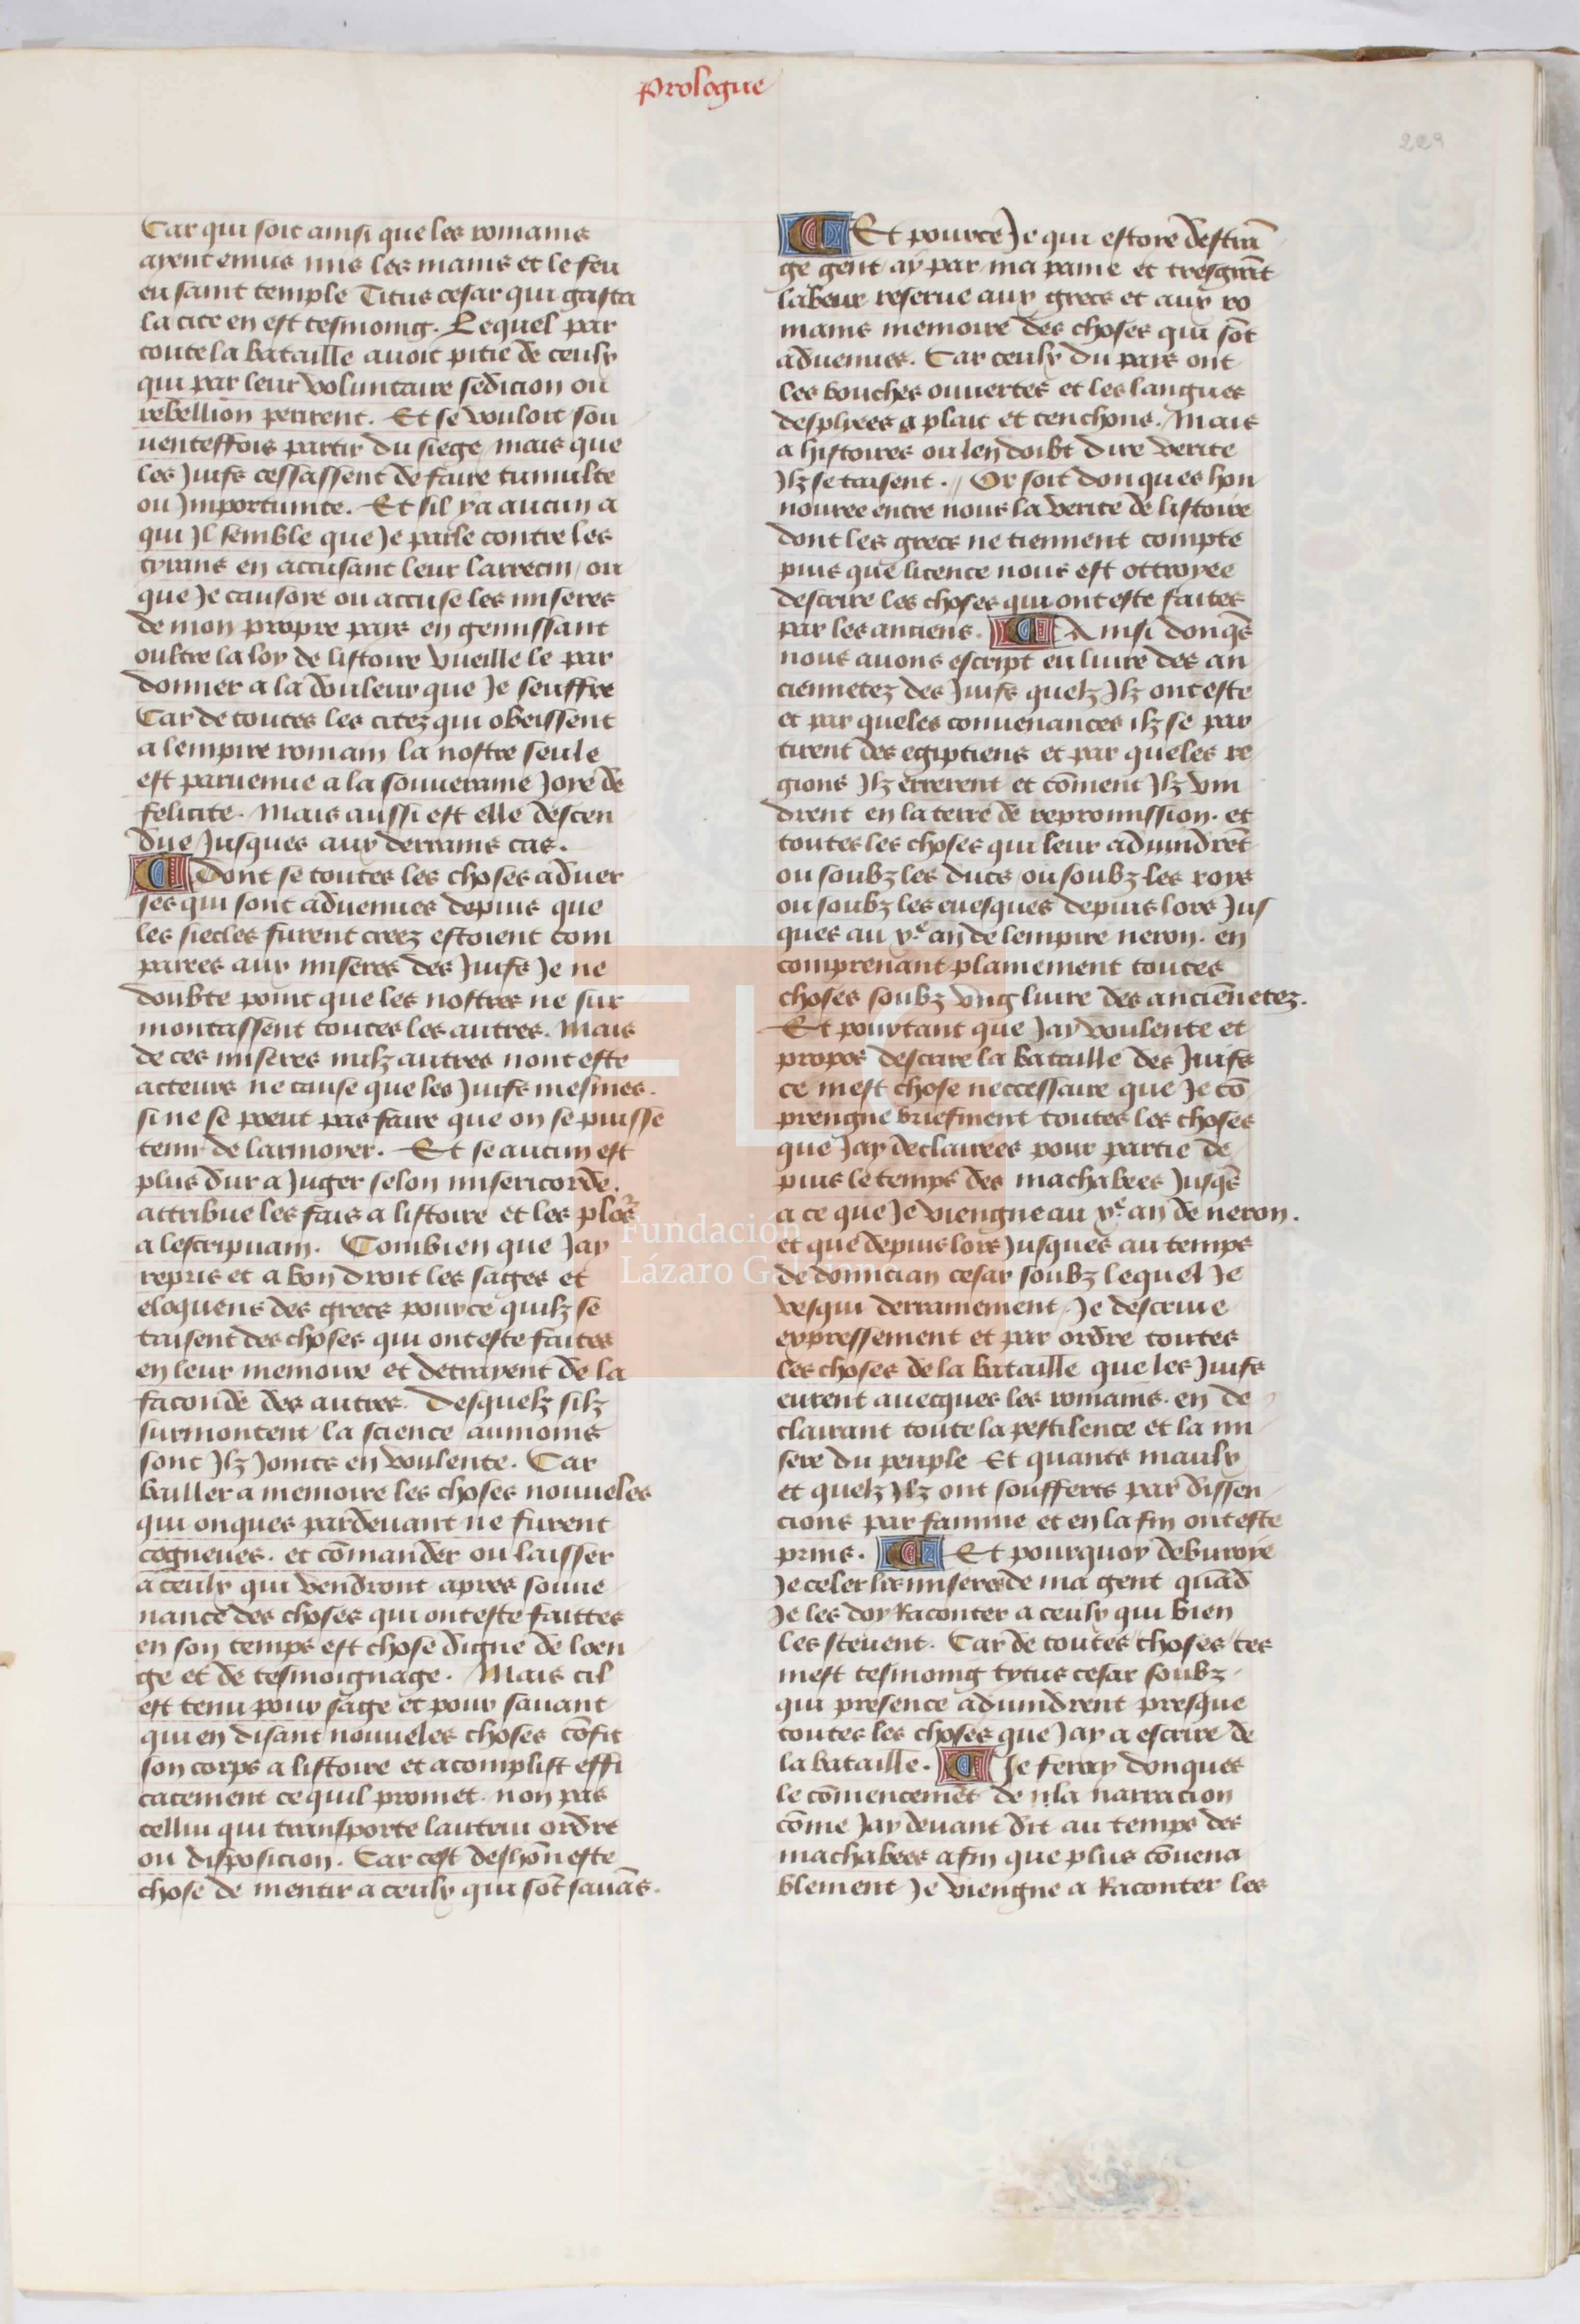 Prologue
229
Car qui soit ainsi que les romains
ayent enuis mis les mains et le feu
eu saint temple Titus cesar qui gasta
la cite en est tesmoing. Lequel par
toute la bataille auoit pitie de ceulx
qui par leur voluntaire sedicion ou
rebellion perirent. Et se vouloit sou
uenteffois partir du siege mais que
les Juifs cessassent de faire tumulte
ou Jmportunite. Et sil ya aucun a
qui Jl semble que Je parle contre les
tyrans en accusant leur larrecin / ou
que Je causoye ou accuse les miseres
de mon propre pays en gemissant
oultre la loy de listoire vueille le par
donner a la douleur que Je seuffre
Car de toutes les citez qui obeissent
a lempire romain la nostre seule
est paruenue a la souueraine Joye de
felicite. Mais aussi est elle descen
due Jusques aux derrains cas.
Dont se toutes les choses aduer
ses qui sont aduenues depuis que
les siecles furent creez estoient com
parees aux miseres des Juifs Je ne
doubte point que les nostres ne sur
montassent toutes les autres. Mais
de ces miseres nulz autres nont este
acteurs ne cause que les Juifs mesmes.
si ne se poeut pas faire que on se puisse
tenir de larmoyer. Et se aucun est
plus dur a Juger selon misericorde.
attribue les fais a listoire et les plors
a lescripuain. Combien que Jay
repris et a bon droit les sages et
eloquens des grecs pource quilz se
taisent des choses qui ont este faites
en leur memoire et detrayent de la
faconde des autres. Desquelz silz
surmontent la science aumoins
sont Jlz Joints en voulente. Car
baillier a memoire les choses nouueles
qui onques pardeuant ne furent
cogneues. et cōmander ou laisser
a ceulx qui vendront apres souue
nance des choses qui ont este faittes
en son temps est chose digne de loen
ge et de tesmoignage. Mais cil
est tenu pour sage et pour sauant
qui en disant nouueles choses cōfit
son corps a listoire et acomplist effi
cacement ce quil promet. non pas
cellui qui transporte lautrui ordre
ou disposicion. Car cest deshōneste
chose de mentir a ceulx qui sōt sauās.
Et pource Je qui estoye destrā
ge gent ay par ma paine et tresgrāt
labeur reserue aux grecs et aux ro
mains memoire des choses qui sōt
aduenues. Car ceulx du pays ont
les bouches ouuertes et les langues
desployees a plait et tenchons. Mais
a histoires ou len doibt dire verite
Jlz se taisent. Or soit donques hon
nouree entre nous la verite de listoire
dont les grecs ne tiennent compte
puis que licence nous est ottroyee
descrire les choses qui ont este faites
par les anciens. Ainsi donqs̄
nous auons escript eu liure des an
ciennetez des Juifs quelz Jlz ont este
et par queles conuenances ilz se par
tirent des egiptiens et par queles re
gions Jlz errerent et cōment Jlz vin
drent en la terre de repromission. et
toutes les choses qui leur aduindrēt
ou soubz les ducs ou soubz les roys
ou soubz les euesques depuis lors Jus
ques au xe. an de lempire neron. en
comprenant plainement toutes
choses soubz vng liure des anciēnetez.
Et pourtant que Jay voulente et
propos descrire la bataille des Juifs
ce mest chose neccessaire que Je cō
prengne briefment toutes les choses
que Jay declairees pour partie de
puis le temps des machabees Jusqs̄
a ce que Je viengne au xe. an de neron.
et que depuis lors Jusques au temps
de domician cesar soubz lequel Je
vesqui derrainement. Je descriue
expressement et par ordre toutes
les choses de la bataille que les Juifs
eurent auecques les romains. en de
clairant toute la pestilence et la mi
sere du peuple Et quants maulx
et quelz Jlz ont soufferts par dissen
cions par famine et en la fin ont este
prins. Et pourquoy deburoye
Je celer les miseres de ma gent quād
Je les doy Raconter a ceulx qui bien
les sceuent. Car de toutes choses ces
mest tesmoing tytus cesar soubz
qui presence aduindrent presque
toutes les choses que Jay a escrire de
la bataille. Je feray donques
le cōmencemēt de ma narracion
cōme Jay deuant dit au temps des
machabees afin que plus cōuena
blement Je viengne a Raconter les
Fundación
Lázaro Galdiano